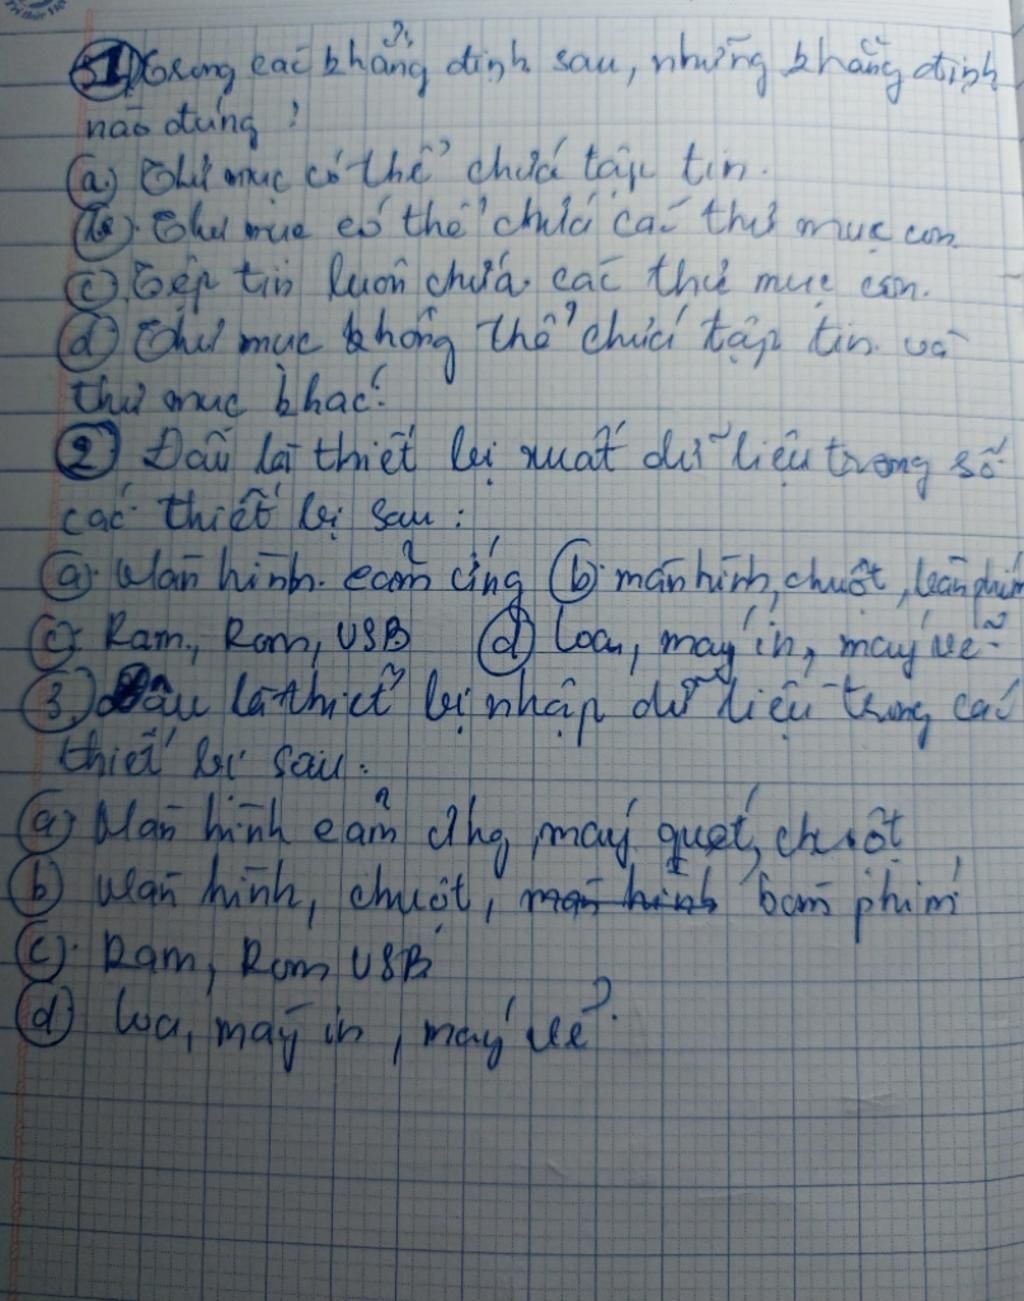 Tri thức Việt
1) Trong các khẳng định sau, những khẳng định
nào đúng?
a) Thư mục có thể chứa tập tin.
b). Thư mục có thể chứa các thư mục con
c) Tệp tin luôn chứa các thư mục con.
d) Thư mục không thể chứa tập tin và
thư mục khác.
2) Đâu là thiết bị xuất dữ liệu trong số
các thiết bị sau:
a). Màn hình cảm ứng b). màn hình, chuột, bàn phím
c). Ram, Rom, USB d) loa, máy in, máy vẽ
3) Đâu là thiết bị nhập dữ liệu trong các
thiết bị sau:
a) Màn hình cảm ứng, máy quét, chuột
b) Màn hình, chuột, màn hình bàn phím
c). Ram, Rom USB
d) loa, máy in, máy vẽ.